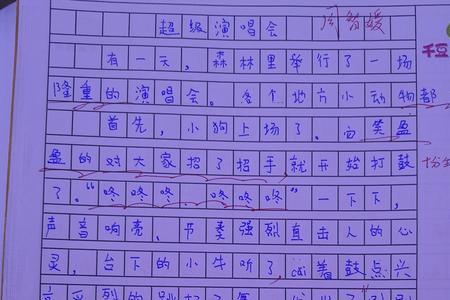 超级演唱会 周智媛
有一天，森林里举行了一场
隆重的演唱会。各个地方小动物都
首先，小狗上场了。向笑盈
盈的对大家招了招手，就开始打鼓
了。“咚咚咚 咚咚咚”一下下，
声音响亮、节奏强烈直击人的心
灵，台下的小牛听了，cǎi着鼓点兴